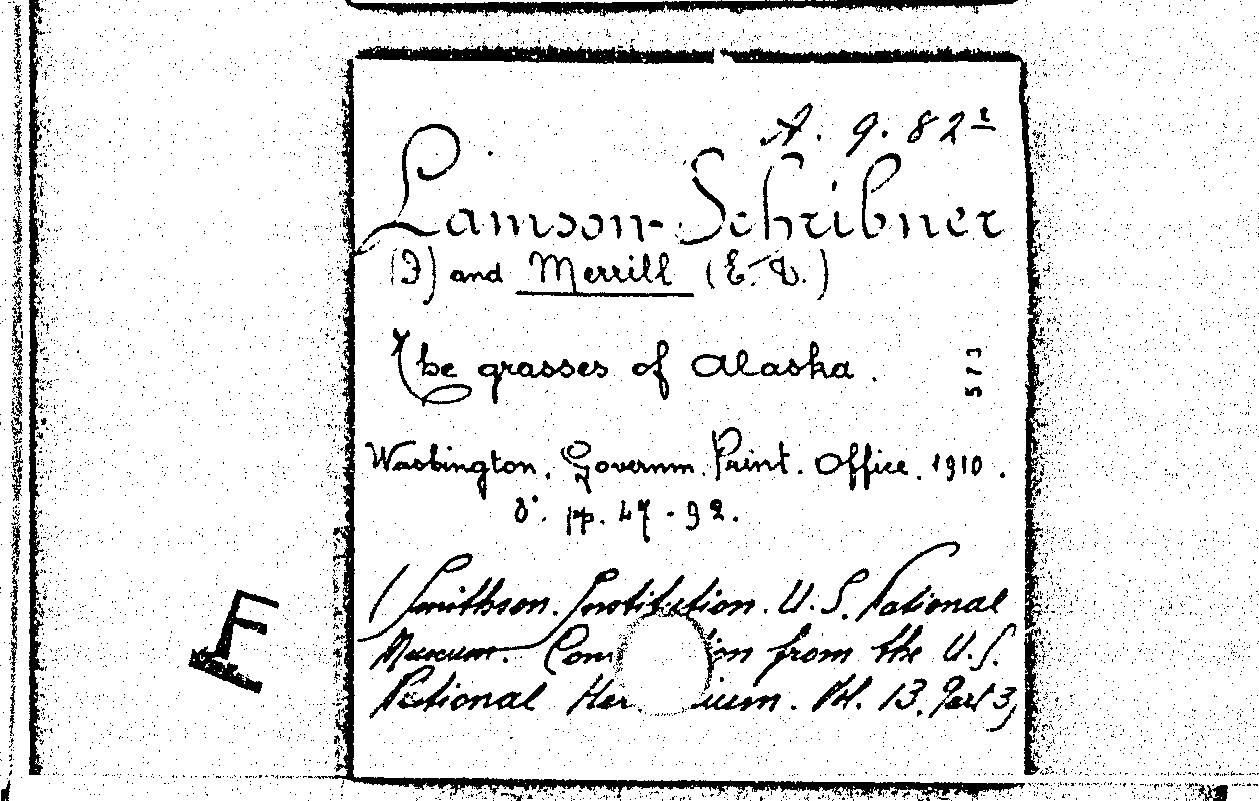 A. 9. 82¹
Lamson-Schribner
(F) and Merrill (E. D.)
The grasses of Alaska.
573
Washington. Governm. Print. Office. 1910.
8°. pp. 47-92.
(Smithson. Institution. U.S. National
Museum. from the U.S.
National Vol. 13, Part 3)
E